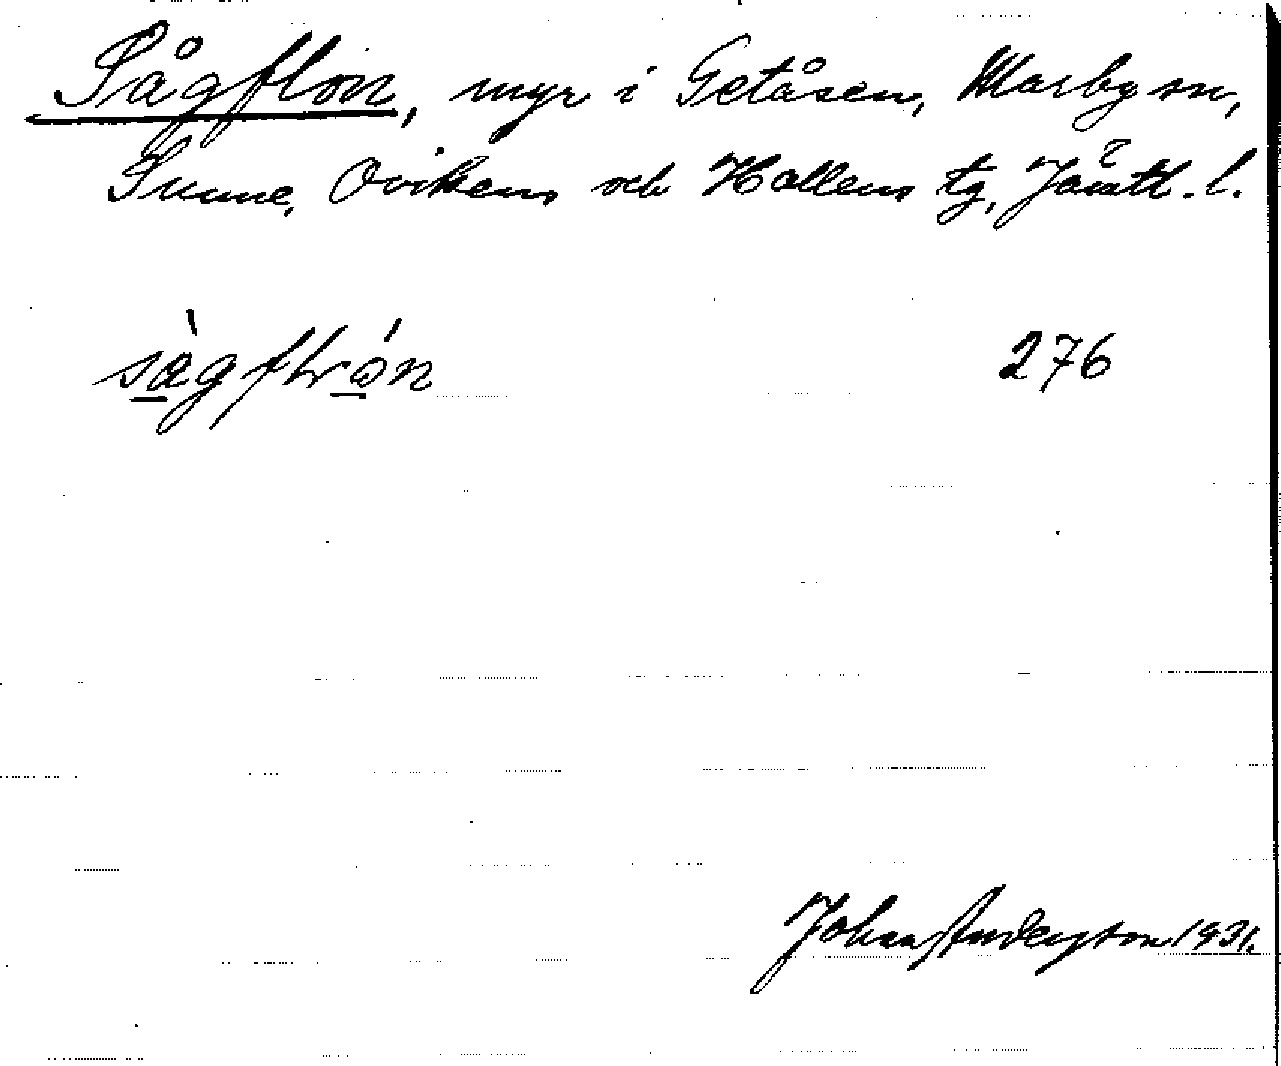 Sågflon, myr i Getåsen, Marby sn,
Sunne, Ovikens och Hallens tg, Jämtl. l.
sàgflrón 276
Johan Anderson 1931.